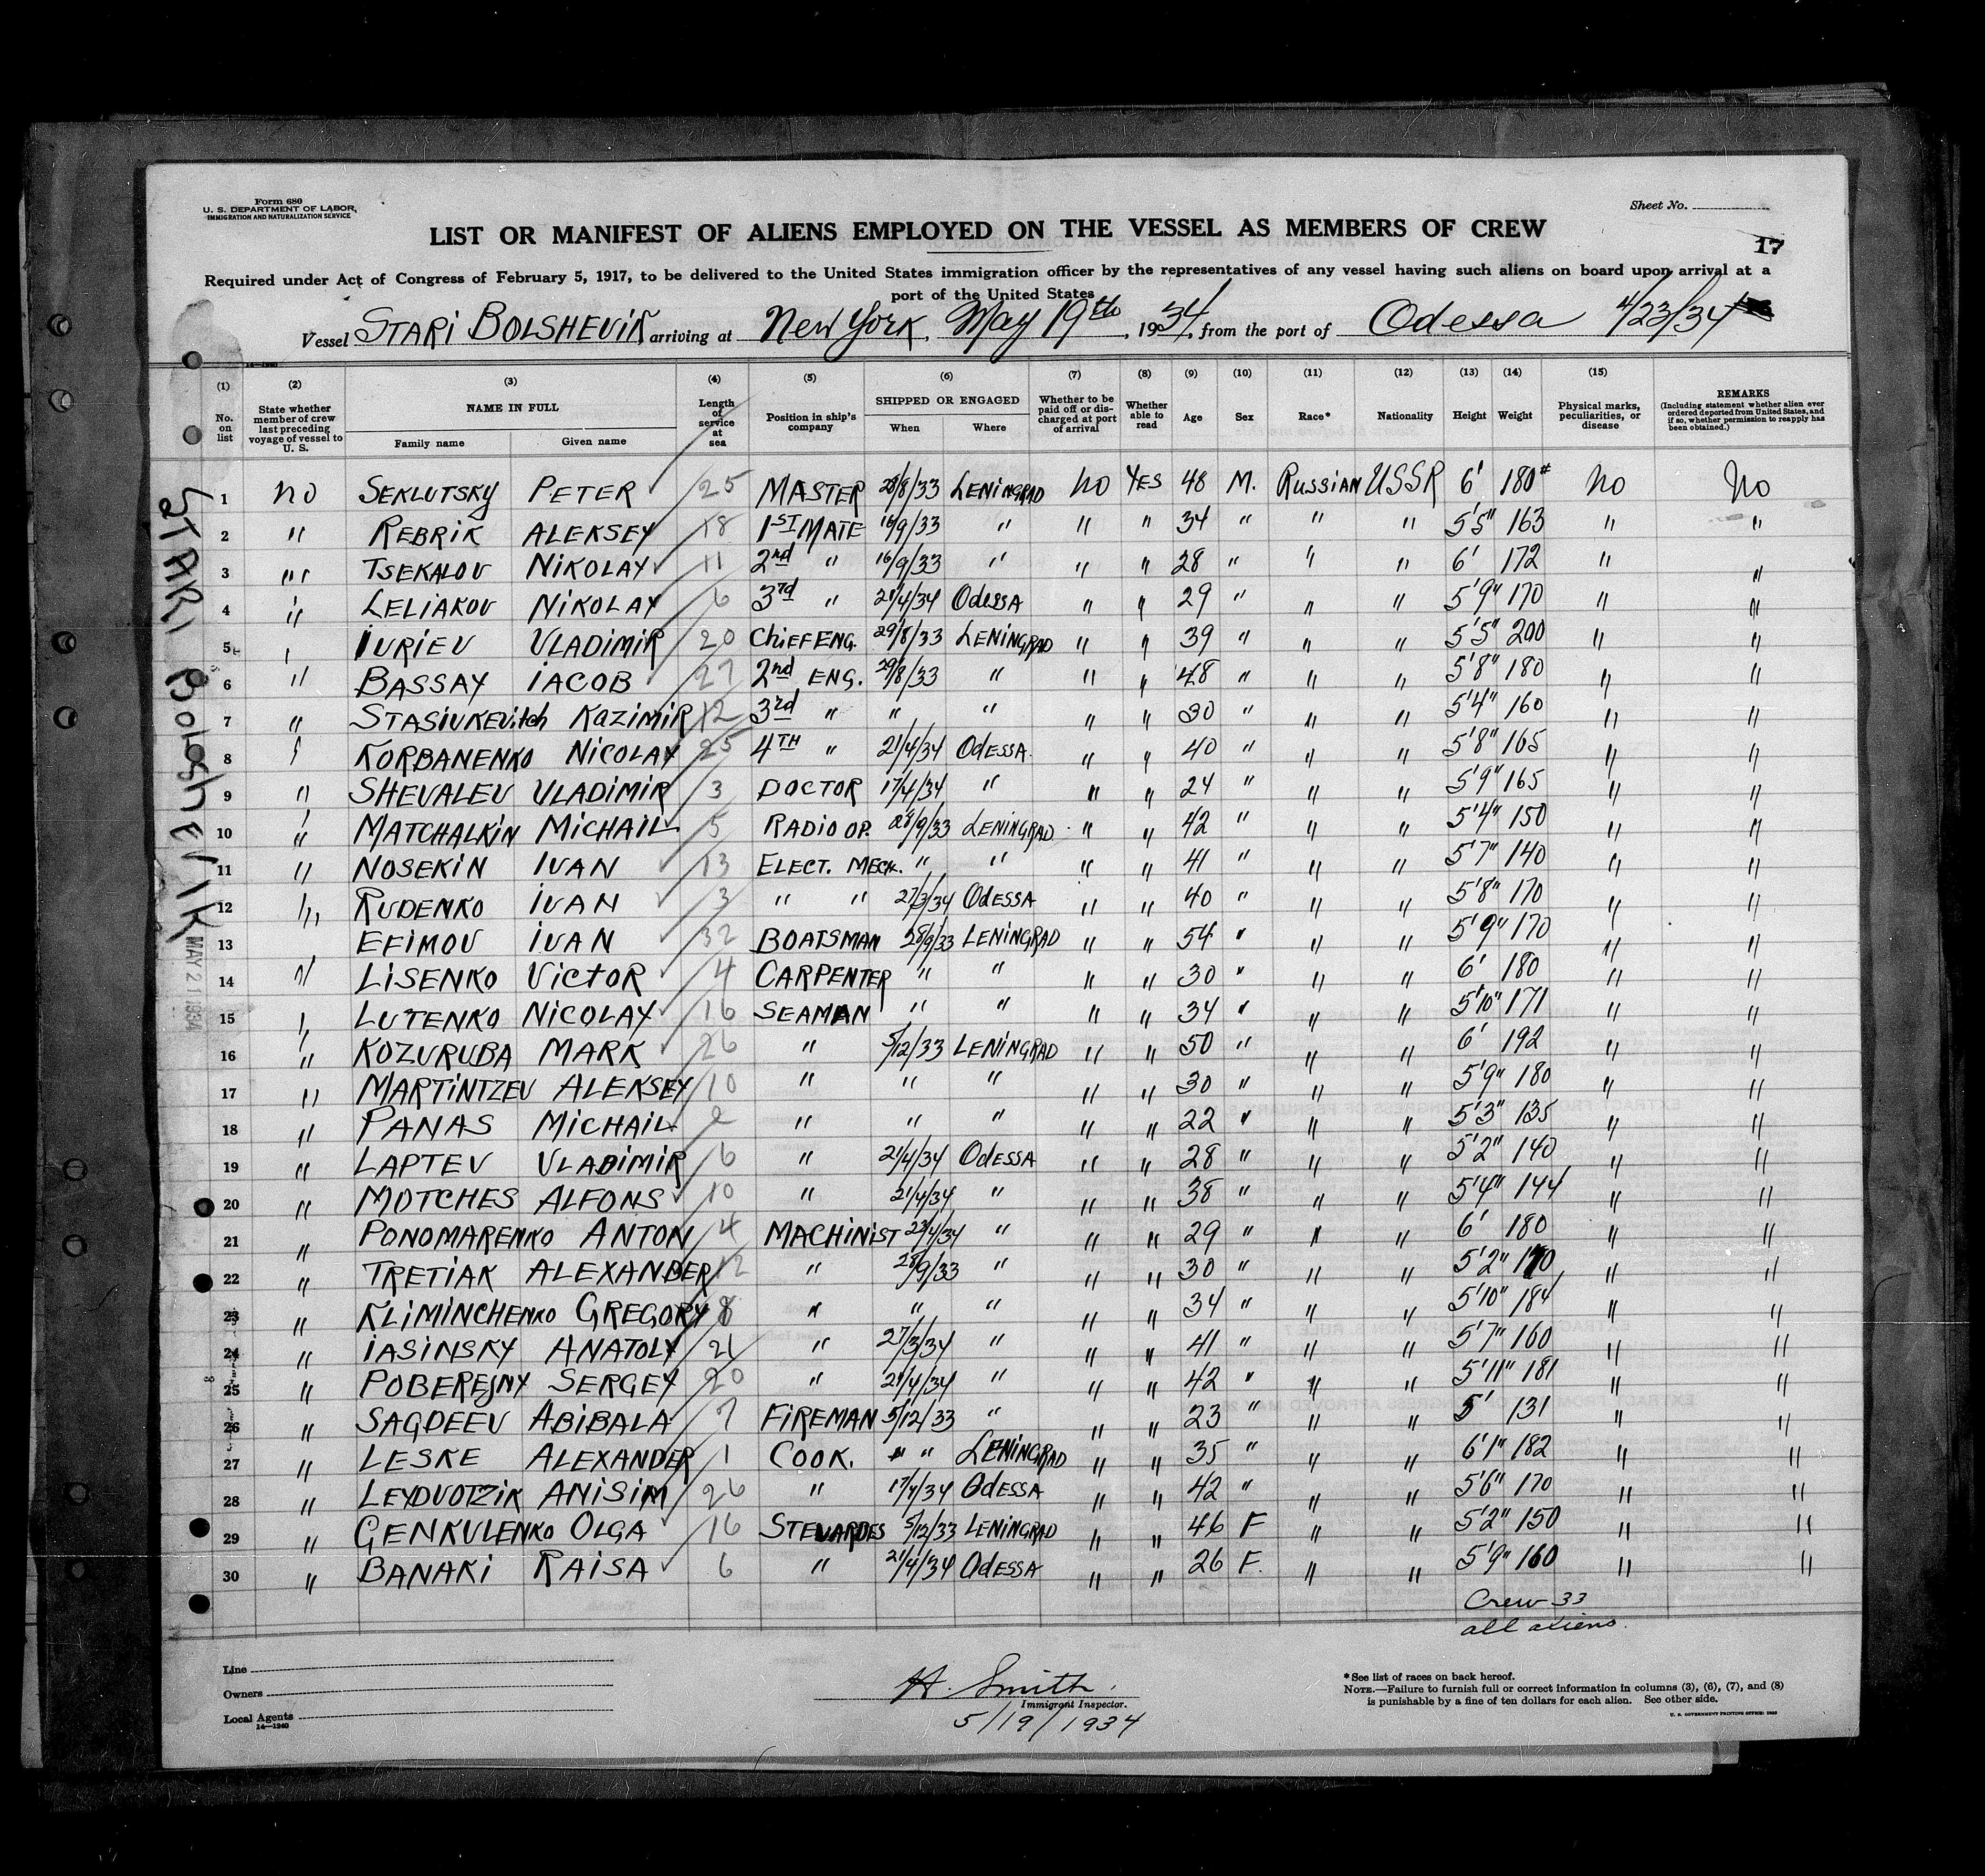 Form 680
U. S. DEPARTMENT OF LABOR,
IMMIGRATION AND NATURALIZATION SERVICE
Sheet No.
LIST OR MANIFEST OF ALIENS EMPLOYED ON THE VESSEL AS MEMBERS OF CREW
17
Required under Act of Congress of February 5, 1917, to be delivered to the United States immigration officer by the representatives of any vessel having such aliens on board upon arrival at a
port of the United States
Vessel STARI BOLSHEVIK arriving at New York, May 19th, 1934, from the port of Odessa 4/23/34
14—1240
(1) (2) (3) (4) (5) (6) (7) (8) (9) (10) (11) (12) (13) (14) (15)
No. on list State whether member of crew last preceding voyage of vessel to U. S. NAME IN FULL Family name Given name Length of service at sea Position in ship's company SHIPPED OR ENGAGED When Where Whether to be paid off or discharged at port of arrival Whether able to read Age Sex Race* Nationality Height Weight Physical marks, peculiarities, or disease REMARKS (Including statement whether alien ever ordered deported from United States, and if so, whether permission to reapply has been obtained.)
1 No SEKLUTSKY PETER 25 MASTER 28/8/33 LENINGRAD No YES 48 M. RUSSIAN USSR 6' 180# No No
2 " REBRIK ALEKSEY 18 1ST MATE 16/9/33 " " " 34 " " " 5'5" 163 " "
3 " TSEKALOV NIKOLAY 11 2nd " 16/9/33 " " " 28 " " " 6' 172 " "
4 " LELIAKOV NIKOLAY 6 3rd " 21/4/34 Odessa " " 29 " " " 5'9" 170 " "
5 " IURIEV VLADIMIR 20 CHIEF ENG. 29/8/33 LENINGRAD " " 39 " " " 5'5" 200 " "
6 " BASSAY IACOB 27 2nd ENG. 29/8/33 " " " 48 " " " 5'8" 180 " "
7 " STASIUKEVitch KAZIMIR 12 3rd " " " " " 30 " " " 5'4" 160 " "
8 " KORBANENKO NICOLAY 25 4TH " 21/4/34 ODESSA " " 40 " " " 5'8" 165 " "
9 " SHEVALEV VLADIMIR 3 DOCTOR 17/4/34 " " " 24 " " " 5'9" 165 " "
10 " MATCHALKIN MICHAIL 5 RADIO OP. 28/9/33 LENINGRAD " " 42 " " " 5'4" 150 " "
11 " NOSEKIN IVAN 13 ELECT. MECH. " " " " 41 " " " 5'7" 140 " "
12 " RUDENKO IVAN 3 " " 27/3/34 ODESSA " " 40 " " " 5'8" 170 " "
13 EFIMOV IVAN 32 BOATSMAN 28/9/33 LENINGRAD " " 54 " " " 5'9" 170 " "
14 " LISENKO VICTOR 4 CARPENTER " " " " 30 " " " 6' 180 " "
15 " LUTENKO NICOLAY 16 SEAMAN " " " " 34 " " " 5'10" 171 " "
16 " KOZURUBA MARK 26 " 5/12/33 LENINGRAD " " 50 " " " 6' 192 " "
17 " MARTINTZEV ALEKSEY 10 " " " " " 30 " " " 5'9" 180 " "
18 " PANAS MICHAIL 2 " " " " " 22 " " " 5'3" 135 " "
19 " LAPTEV VLADIMIR 6 " 21/4/34 ODESSA " " 28 " " " 5'2" 140 " "
20 " MOTCHES ALFONS 10 " 21/4/34 " " " 38 " " " 5'4" 144 " "
21 " PONOMARENKO ANTON 4 MACHINIST 22/4/34 " " " 29 " " " 6' 180 " "
22 " TRETIAK ALEXANDER 12 " 28/9/33 " " " 30 " " " 5'2" 170 " "
23 " KLIMINCHENKO GREGORY 8 " " " " " 34 " " " 5'10" 184 " "
24 " IASINSKY ANATOLY 21 " 27/3/34 " " " 41 " " " 5'7" 160 " "
25 " POBEREJNY SERGEY 20 " 21/4/34 " " " 42 " " " 5'11" 181 " "
26 " SAGDEEV ABIBALA 7 FIREMAN 5/12/33 " " " 23 " " " 5' 131 " "
27 " LESKE ALEXANDER 1 COOK. " " LENINGRAD " " 35 " " " 6'1" 182 " "
28 " LEYDVOTZIK ANISIM 26 " 17/4/34 ODESSA " " 42 " " " 5'6" 170 " "
29 " GENKULENKO OLGA 16 STEVARDES 5/12/33 LENINGRAD " " 46 F " " 5'2" 150 " "
30 " BANAKI RAISA 6 " 21/4/34 ODESSA " " 26 F. " " 5'9" 160 " "
Crew 33
all aliens.
STARI BOLSHEVIK
MAY 21 1934
Line
Owners
Local Agents
14—1240
H. Smith.
Immigrant Inspector.
5/19/1934
*See list of races on back hereof.
NOTE.—Failure to furnish full or correct information in columns (3), (6), (7), and (8)
is punishable by a fine of ten dollars for each alien. See other side.
U. S. GOVERNMENT PRINTING OFFICE